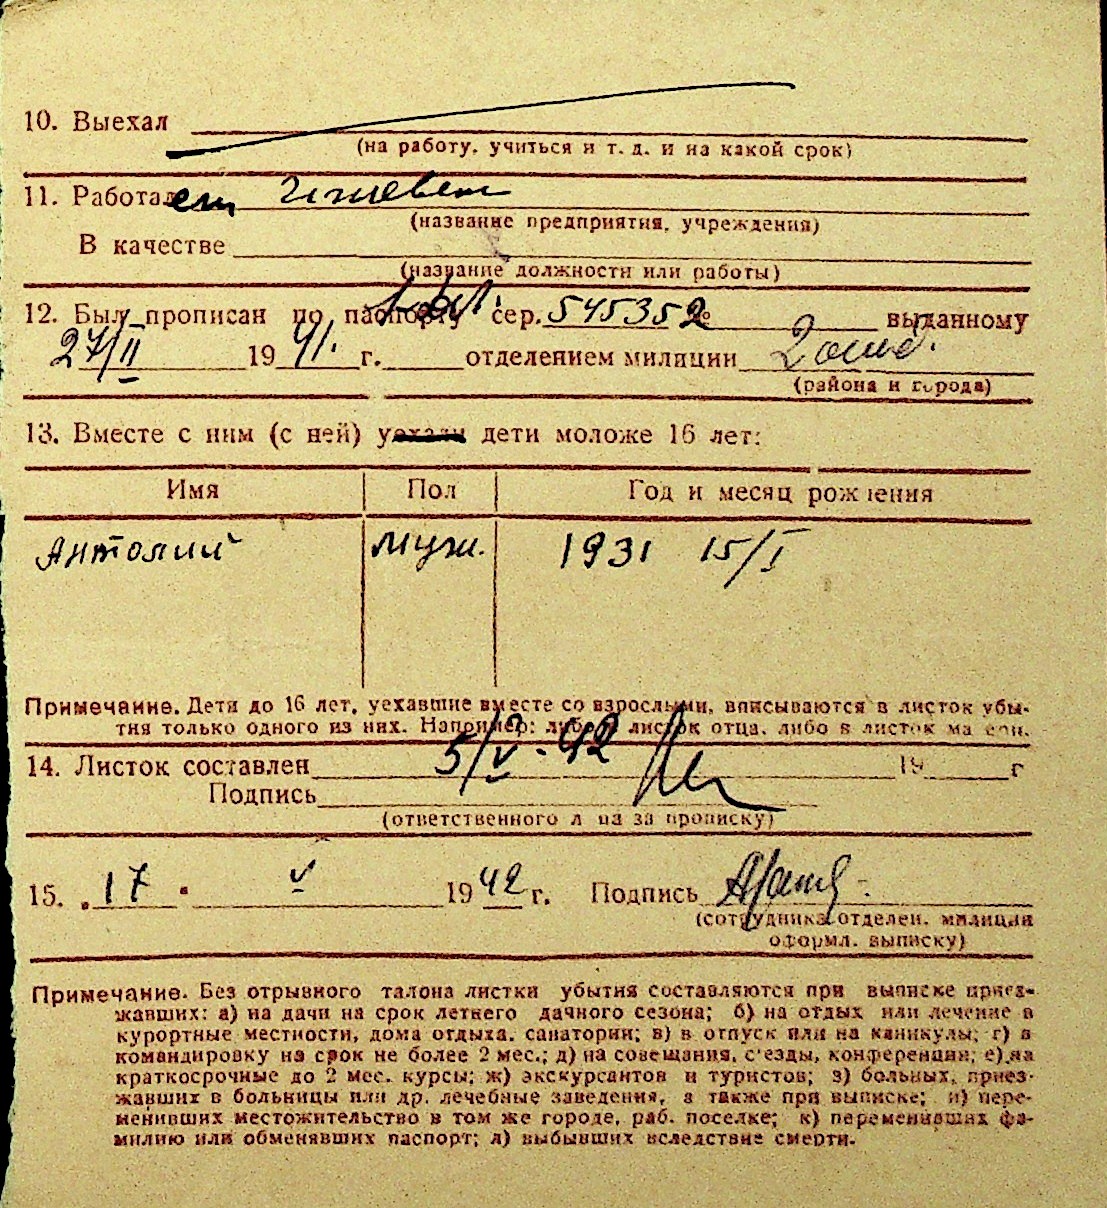 10. Выехал
(на работу, учиться и т. д. и на какой срок)
11. Работает
(название предприятия, учреждения)
В качестве
(название должности или работы)
12. Был прописан по паспорту сер. 545352 № выданному
27/II 1941. г. отделением милиции 2 отд.
(района и города)
13. Вместе с ним (с ней) уехали дети моложе 16 лет:
Имя Пол Год и месяц рождения
Антолий муж. 1931 15/I
Примечание. Дети до 16 лет, уехавшие вместе со взрослыми, вписываются в листок убы-
тия только одного из них. Например: либо в листок отца, либо в листок матери.
14. Листок составлен 5/V-42 19 г
Подпись
(ответственного лица за прописку)
15. „17" V 1942 г. Подпись
(сотрудника отделен. милиции
оформл. выписку)
Примечание. Без отрывного талона листки убытия составляются при выписке приез-
жавших: а) на дачи на срок летнего дачного сезона; б) на отдых или лечение в
курортные местности, дома отдыха, санатории; в) в отпуск или на каникулы; г) в
командировку на срок не более 2 мес.; д) на совещания, с'езды, конференции; е) на
краткосрочные до 2 мес. курсы; ж) экскурсантов и туристов; з) больных, приез-
жавших в больницы или др. лечебные заведения, а также при выписке; и) пере-
менивших местожительство в том же городе, раб. поселке; к) переменивших фа-
милию или обменявших паспорт; л) выбывших вследствие смерти.